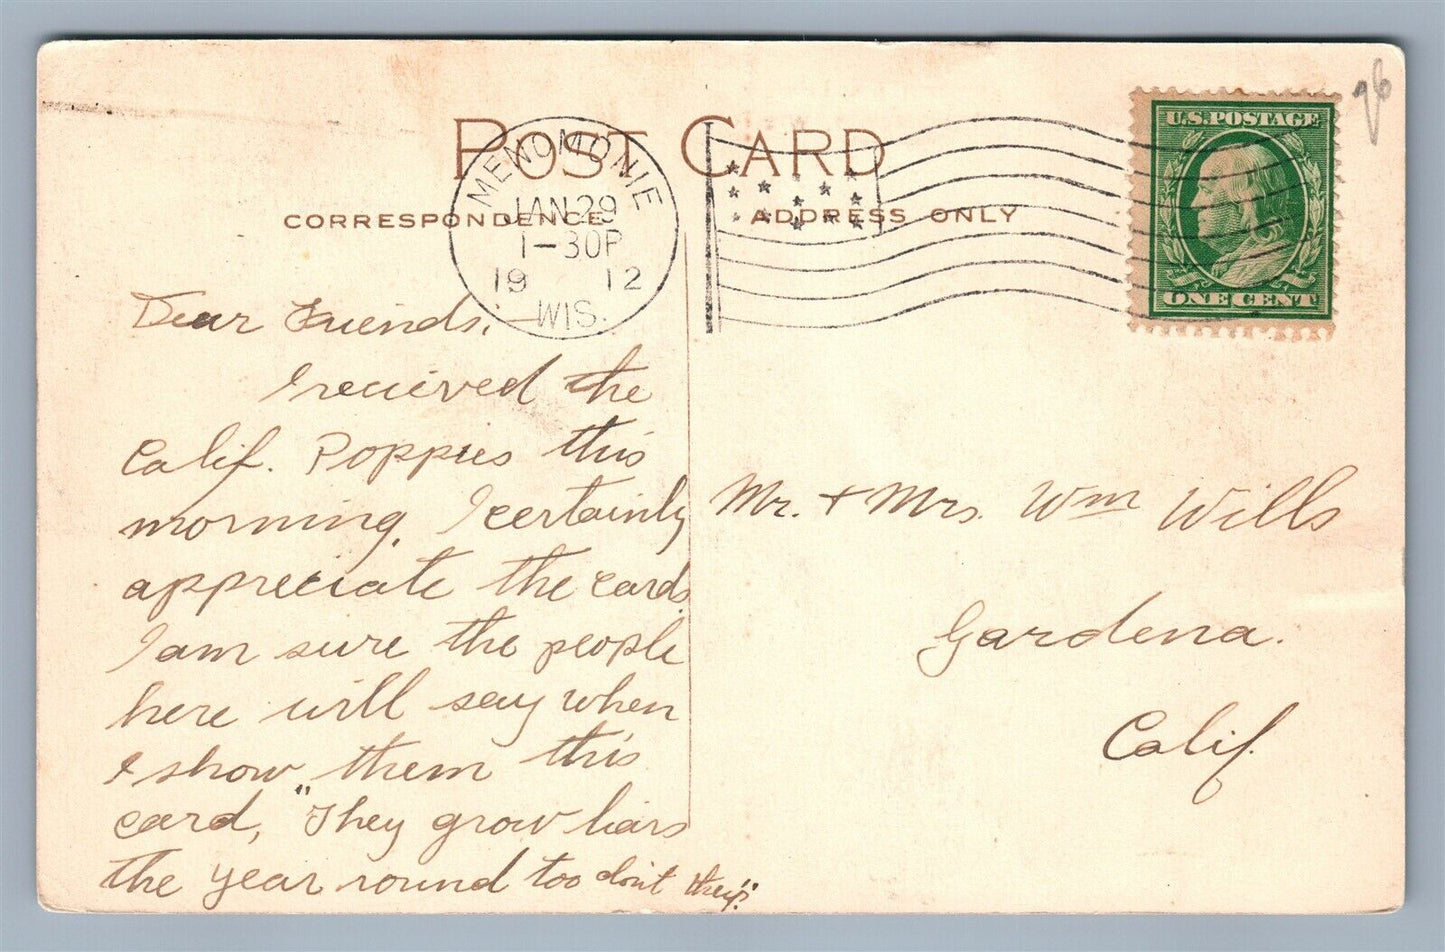 POST CARD
CORRESPONDENCE
ADDRESS ONLY
MENOMONIE
JAN 29
1-30P
1912
WIS.
U.S. POSTAGE
ONE CENT
96
Dear Friends,
I recieved the
Calif. Poppies this
morning. I certainly
appreciate the cards.
I am sure the people
here will say when
I show them this
card, "They grow liars
the year round too don't they?"
Mr. + Mrs. Wm Wills
Gardena.
Calif.